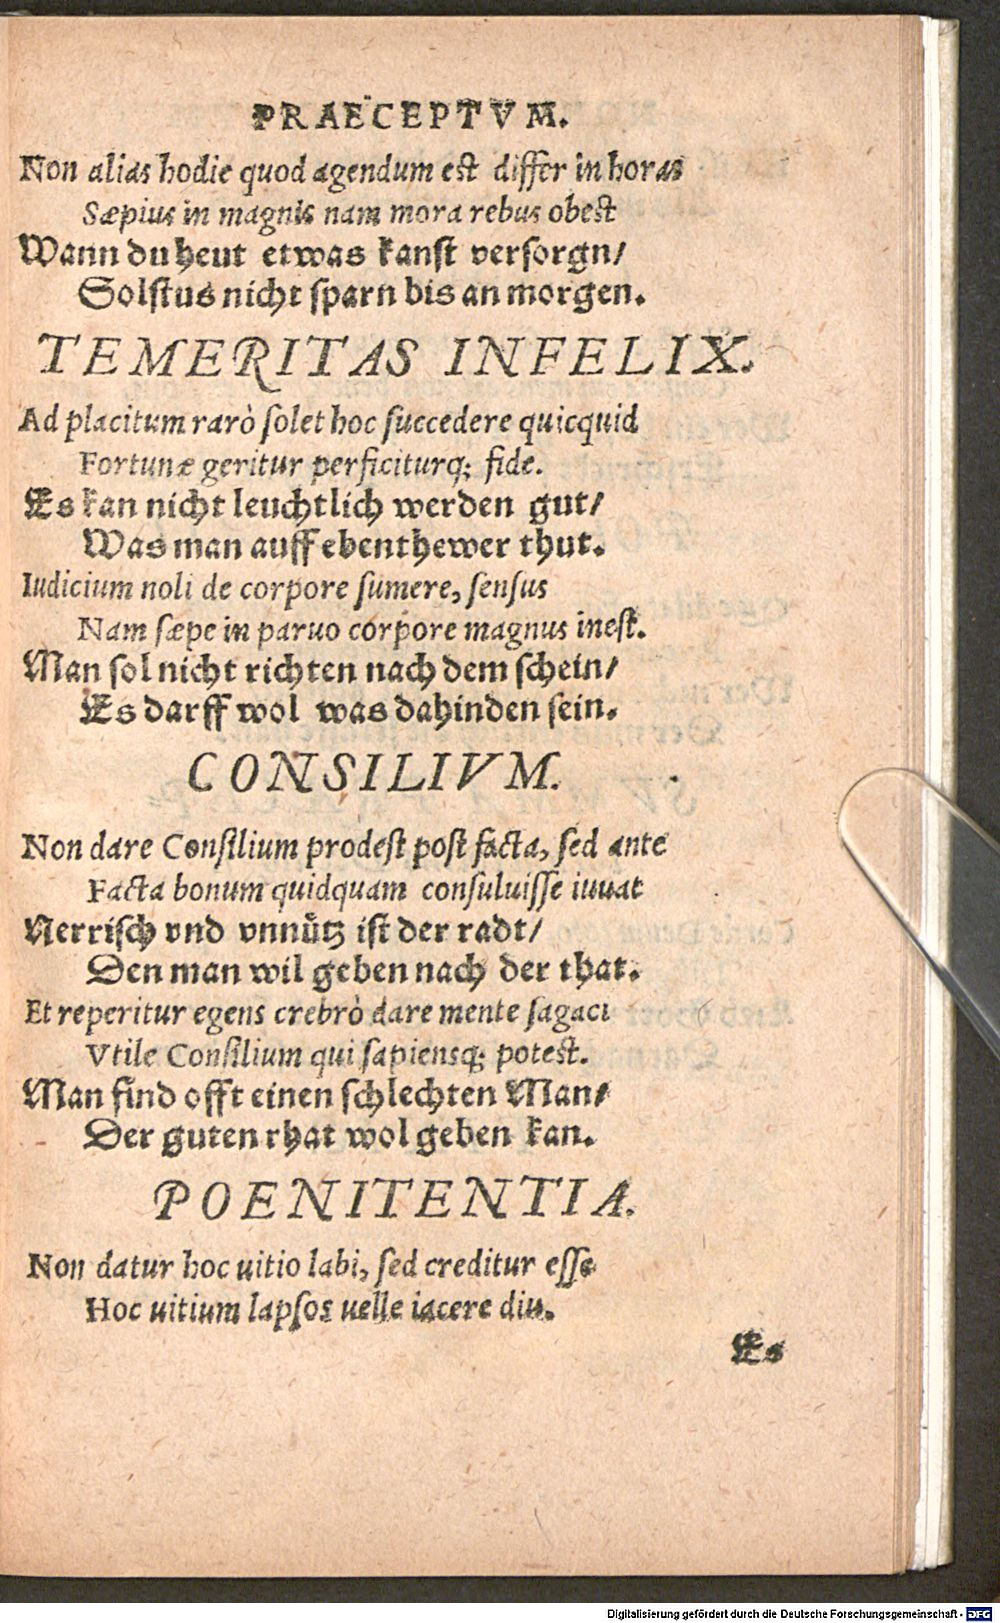 PRAECEPTVM.
Non alias hodie quod agendum est differ in horas
Sæpius in magnis nam mora rebus obest
Wann du heut etwas kanst versorgn/
Solstus nicht sparn bis an morgen.
TEMERITAS INFELIX.
Ad placitum rarò solet hoc succedere quicquid
Fortunæ geritur perficiturq; fide.
Es kan nicht leuchtlich werden gut/
Was man auff ebenthewer thut.
Iudicium noli de corpore sumere, sensus
Nam sæpe in paruo corpore magnus inest.
Man sol nicht richten nach dem schein/
Es darff wol was dahinden sein.
CONSILIVM.
Non dare Consilium prodest post facta, sed ante
Facta bonum quidquam consuluisse iuuat
Nerrisch vnd vnnütz ist der radt/
Den man wil geben nach der that.
Et reperitur egens crebrò dare mente sagaci
Vtile Consilium qui sapiensq; potest.
Man find offt einen schlechten Man/
Der guten rhat wol geben kan.
POENITENTIA.
Non datur hoc uitio labi, sed creditur esse
Hoc uitium lapsos uelle iacere diu.
Es
Digitalisierung gefördert durch die Deutsche Forschungsgemeinschaft - DFG